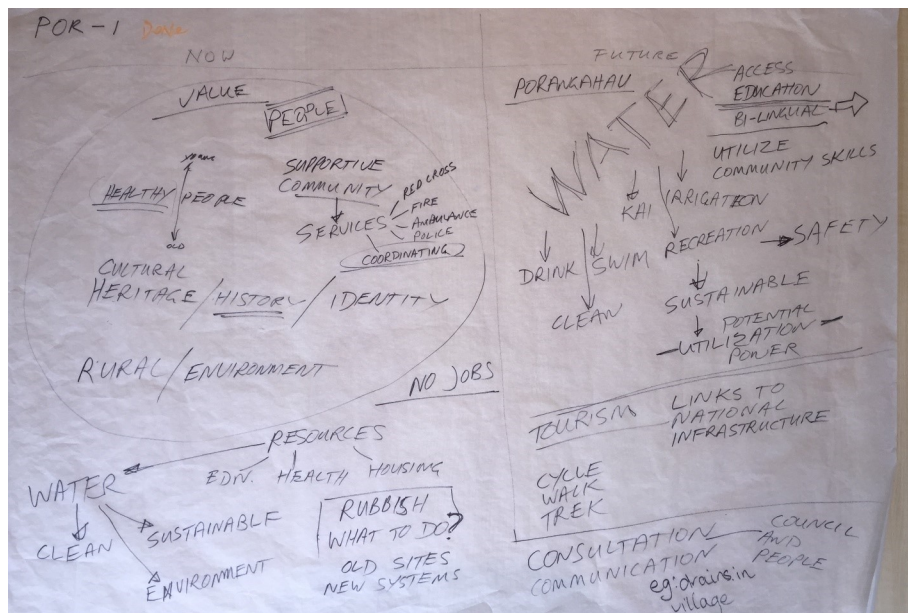 POR-1 Dave
NOW
VALUE
PEOPLE
YOUNG
HEALTHY PEOPLE
OLD
SUPPORTIVE
COMMUNITY
SERVICES
RED CROSS
FIRE
AMBULANCE
POLICE
COORDINATING
CULTURAL
HERITAGE / HISTORY / IDENTITY
RURAL / ENVIRONMENT
NO JOBS
RESOURCES
EDN. HEALTH HOUSING
WATER
CLEAN
SUSTAINABLE
ENVIRONMENT
RUBBISH
WHAT TO DO?
OLD SITES
NEW SYSTEMS
FUTURE
PORANGAHAU
WATER
ACCESS
EDUCATION
BI-LINGUAL
UTILIZE
COMMUNITY SKILLS
DRINK
CLEAN
SWIM
KAI
IRRIGATION
RECREATION
SAFETY
SUSTAINABLE
POTENTIAL
UTILIZATION
POWER
TOURISM
LINKS TO
NATIONAL
INFRASTRUCTURE
CYCLE
WALK
TREK
CONSULTATION
COMMUNICATION
COUNCIL
AND
PEOPLE
eg: drains in
village